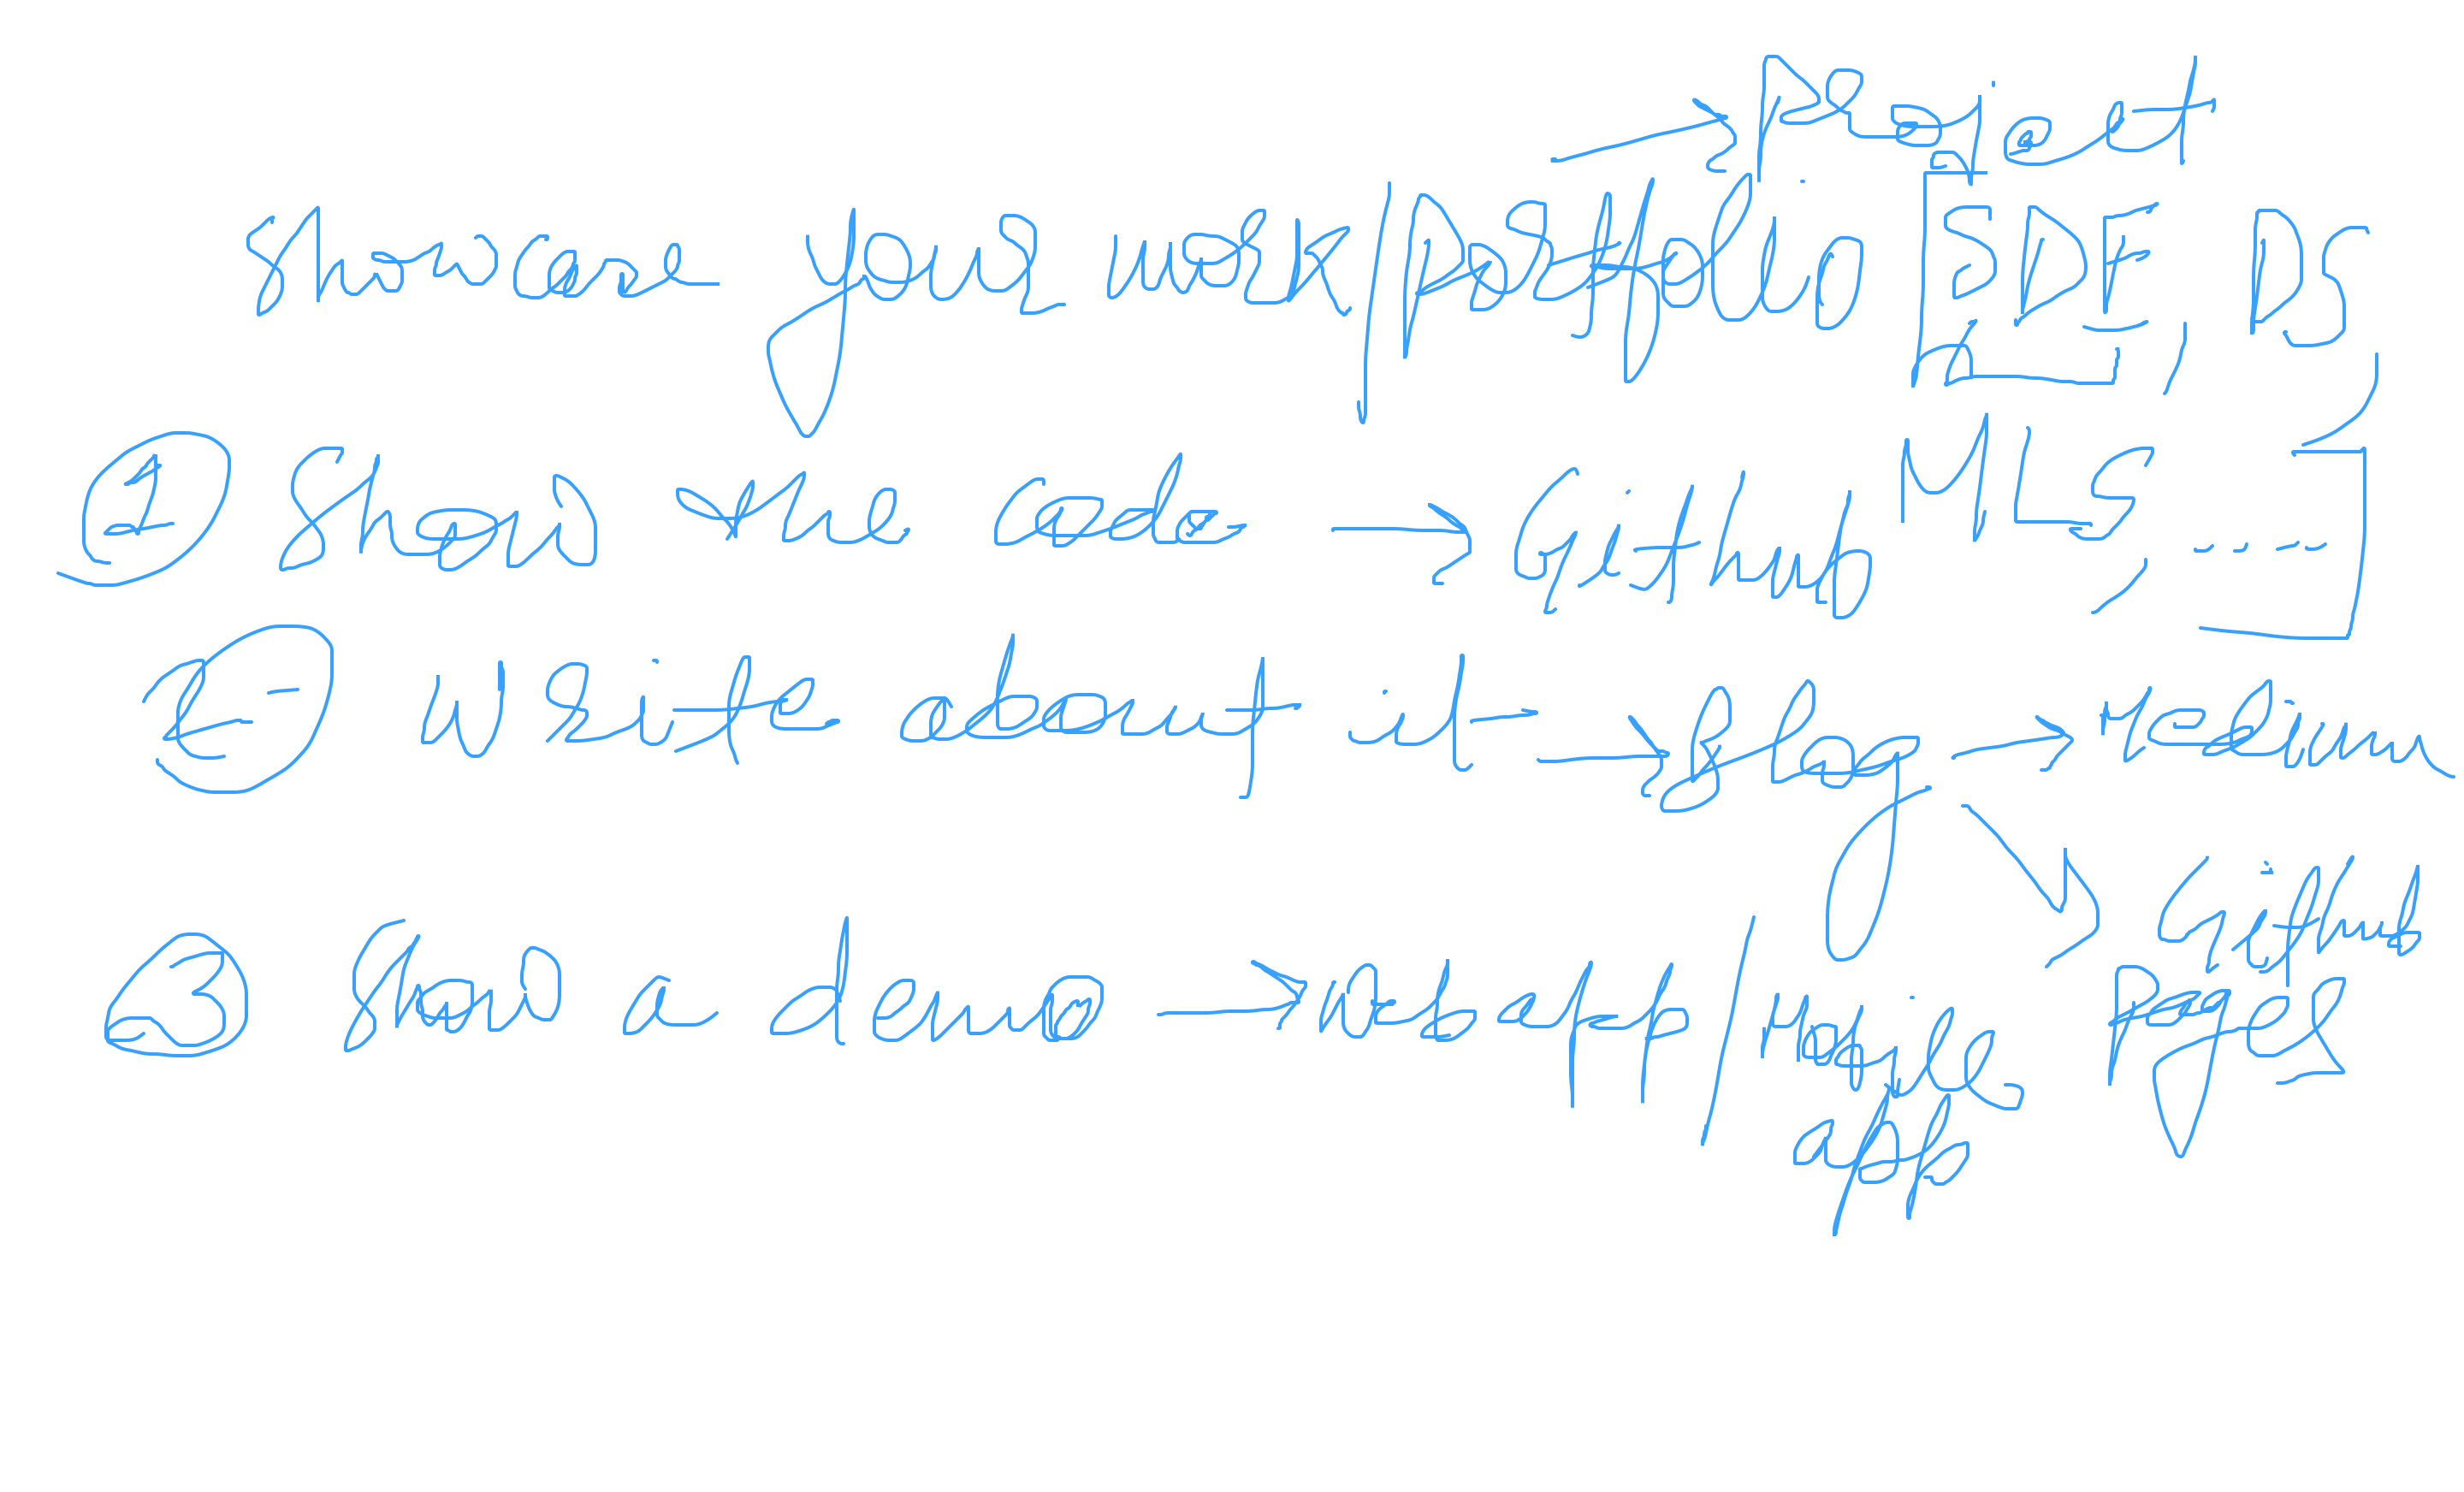 → Project
Showcase your work/Portfolio [SDE, DS,
① Show the code → Github MLS, ----]
② write about it → Blog → medium
Github
③ Show a demo → web app/ mobile Pages
app